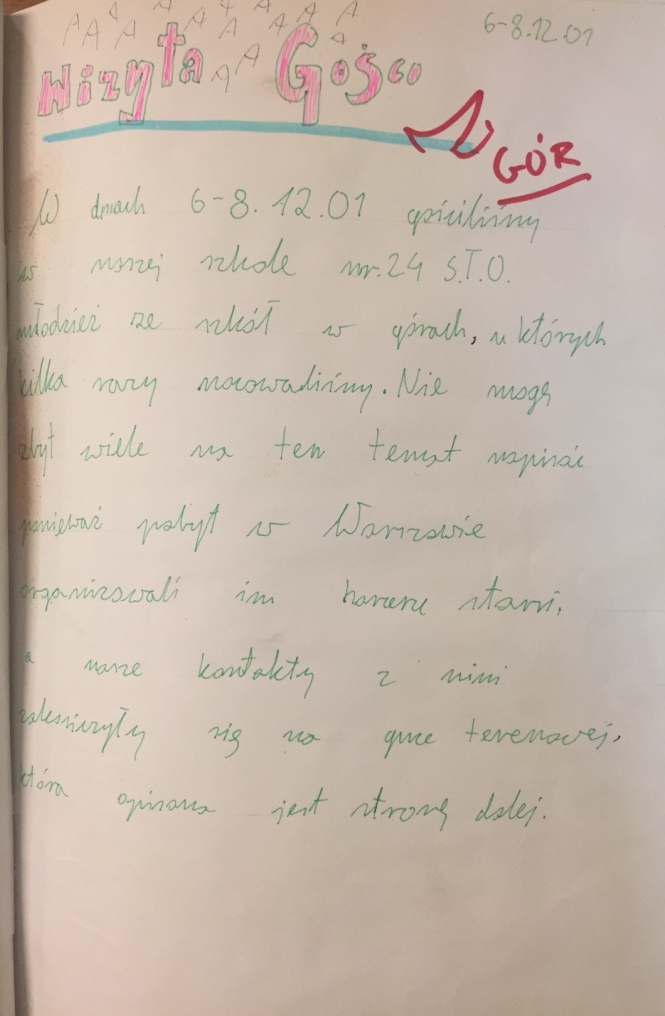 6-8.12.01
Wizyta Gości
Z GÓR
W dniach 6-8.12.01 gościliśmy
w naszej szkole nr.24 S.T.O.
młodzież ze szkół w górach, u których
kilka razy nocowaliśmy. Nie mogę
zbyt wiele na ten temat napisać
ponieważ pobyt w Warszawie
organizowali im harcerze starsi,
a nasze kontakty z nimi
zakończyły się na grze terenowej,
która opisana jest stronę dalej.